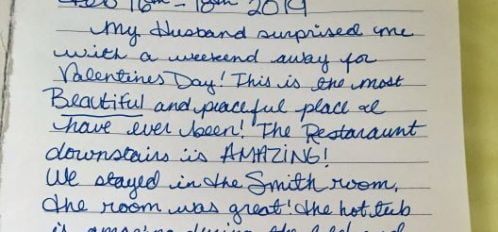 Feb 16th - 18th 2019
My Husband surprised me
with a weekend away for
Valentines Day! This is the most
Beautiful and peaceful place I
have ever been! The Restaraunt
downstairs is AMAZING!
We stayed in the Smith room,
the room was great! the hot tub
is amazing during the